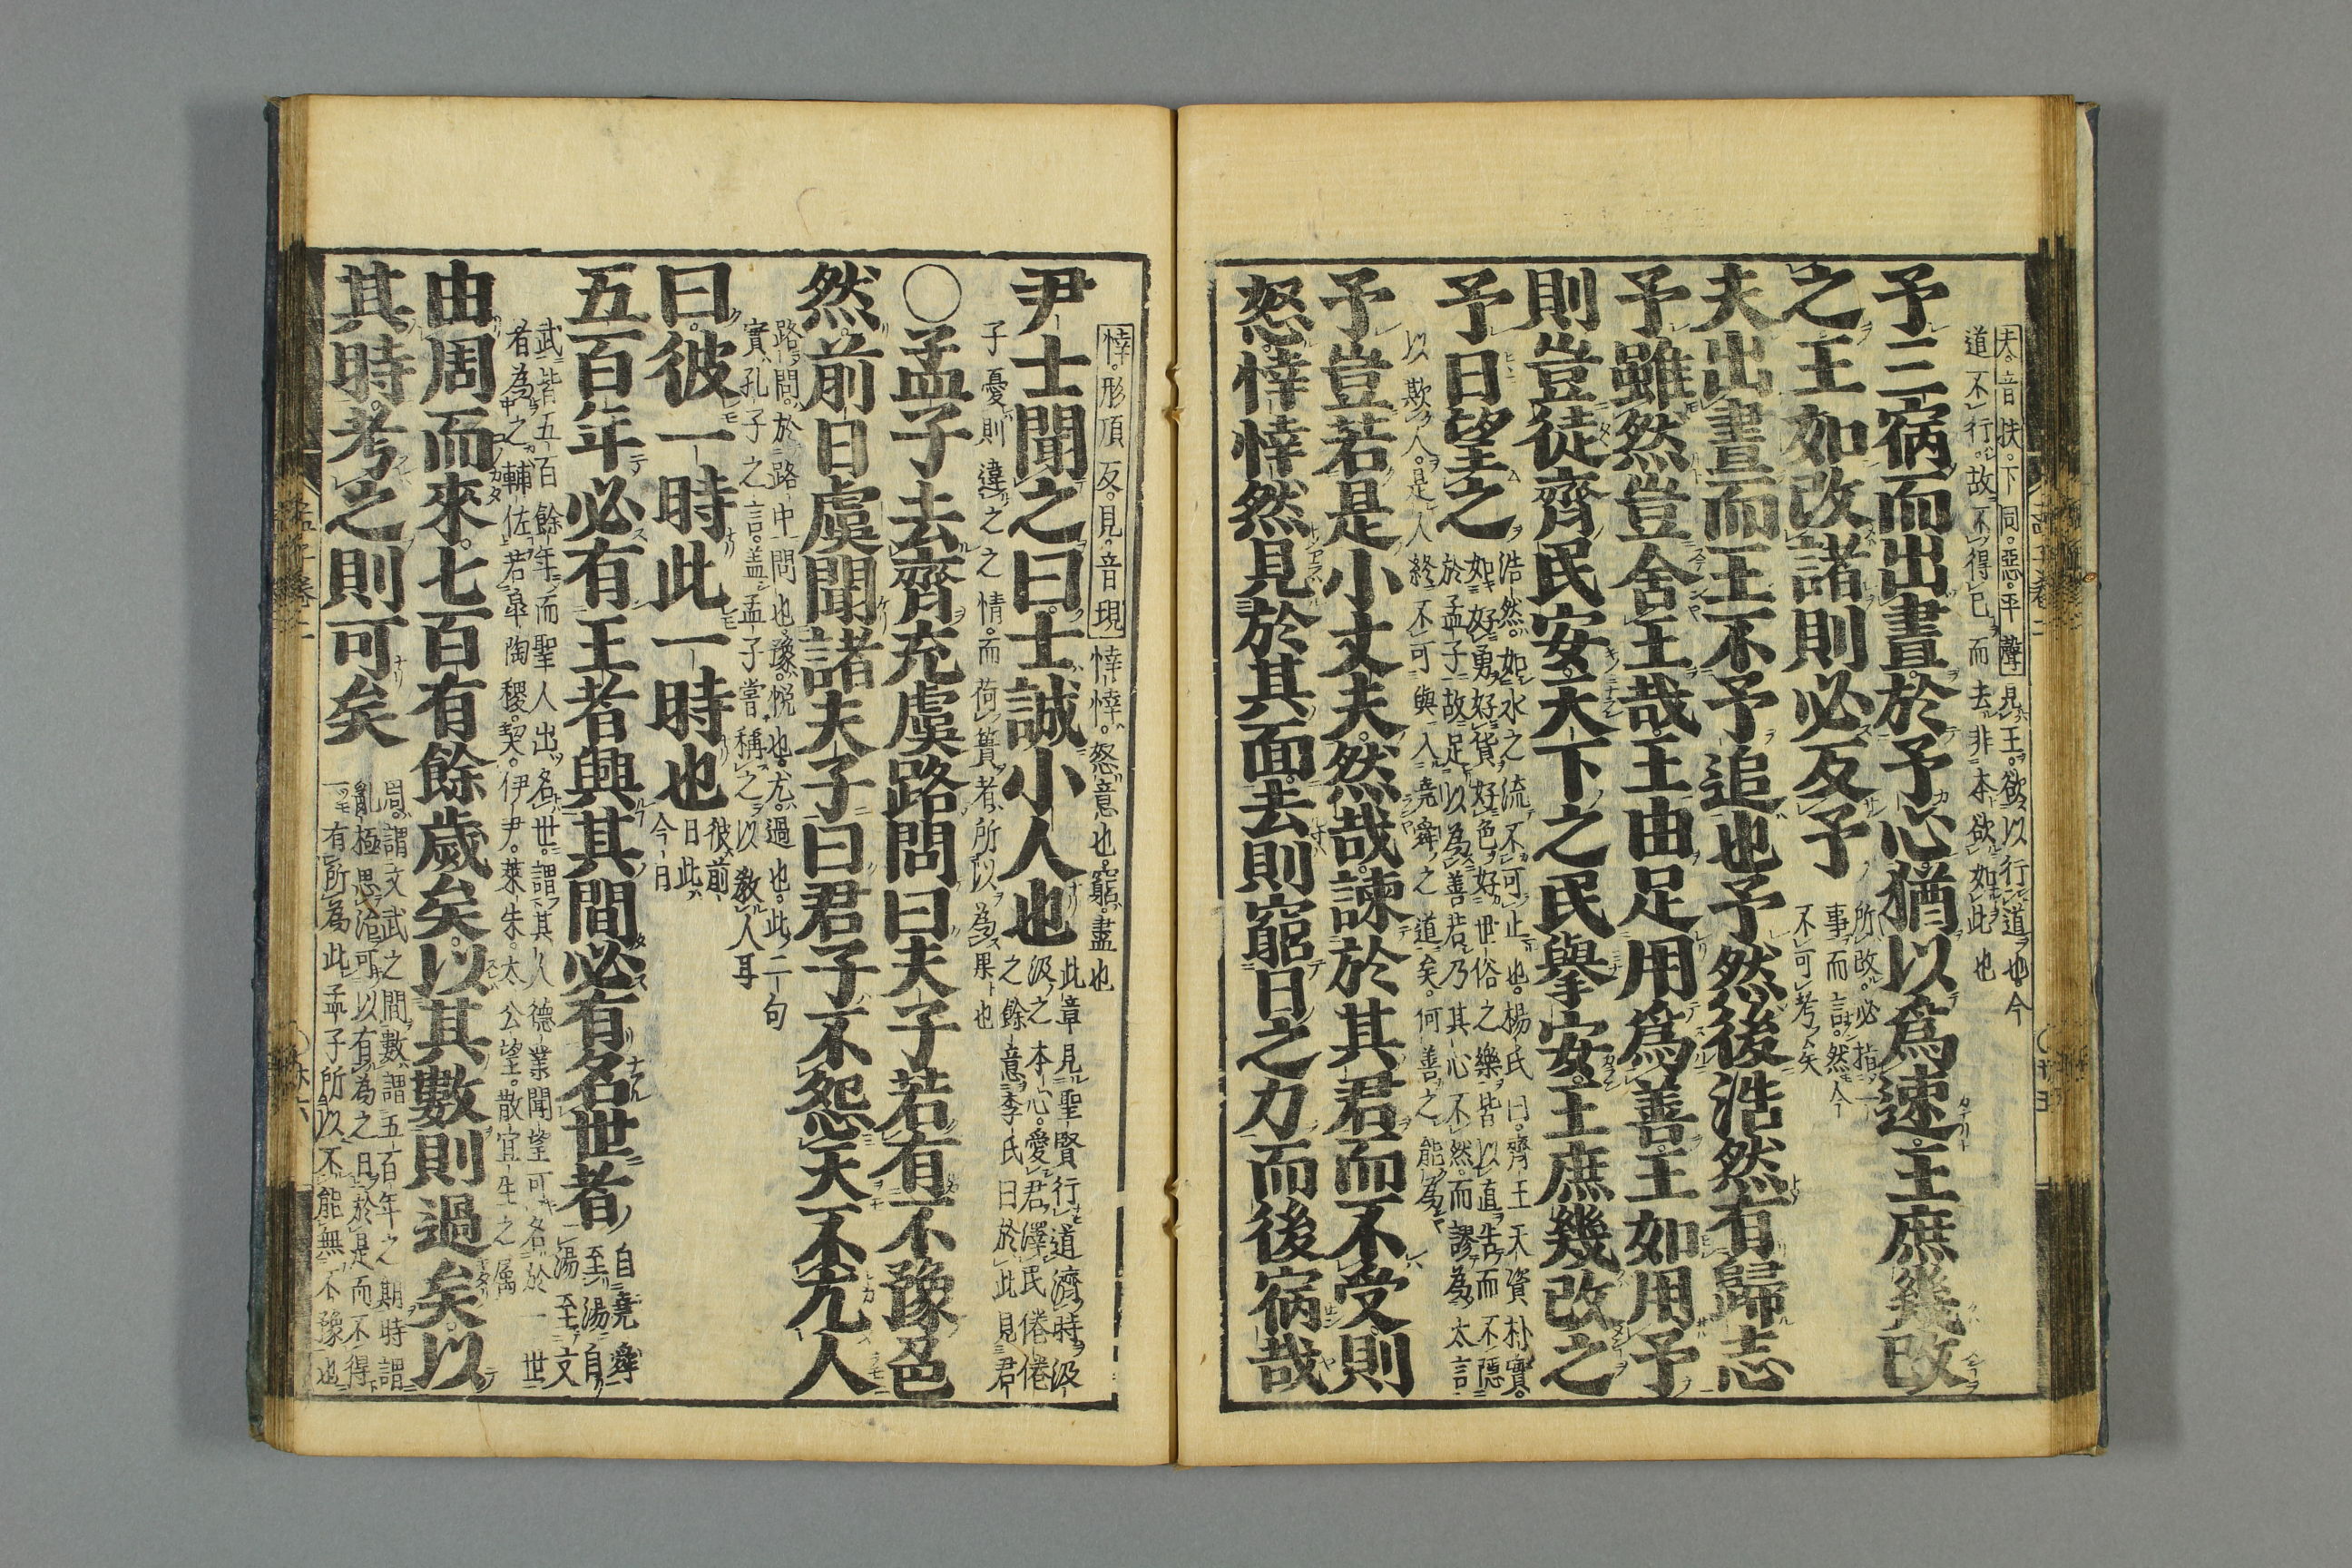 夫音扶下同惡平聲見王欲以行道也今
道不行故不得已而去非本欲如此也
予三宿而出晝於予心猶以爲速王庶幾改
之王如改諸則必反予
所改必指一
事而言然今
不可考矣
夫出晝而王不予追也予然後浩然有歸志
予雖然豈舍王哉王由足用爲善王如用予
則豈徒齊民安天下之民擧安王庶幾改之
予日望之
浩然如水之流不可止也楊氏曰齊王天資朴實
如好勇好貨好色好世俗之樂皆以直告而不隱
於孟子故足以為善若乃其心不然而謬為大言
以欺人是人終不可與入堯舜之道矣何善之能為
予豈若是小丈夫然哉諫於其君而不受則
怒悻悻然見於其面去則窮日之力而後宿哉
悻形頂反見音現悻悻怒意也窮盡也
尹士聞之曰士誠小人也
此章見聖賢行道濟時汲
汲之本心愛君澤民倦倦
之餘意李氏曰於此見君
子憂則違之之情而荷蕢者所以為果也
○孟子去齊充虞路問曰夫子若有不豫色
然前日虞聞諸夫子曰君子不怨天不尤人
路問於路中問也豫悅也尤過也此二句
實孔子之言蓋孟子嘗稱之以教人耳
曰彼一時此一時也
彼前
日此
今日
五百年必有王者興其間必有名世者
自堯舜
至湯自
湯至文
武皆五百餘年而聖人出名世謂其人德業聞望可名於一世
者為之輔佐若皐陶稷契伊尹萊朱太公望散宜生之属
由周而來七百有餘歲矣以其數則過矣以
其時考之則可矣
周謂文武之間數謂五百年之期時謂
亂極思治可以有為之日於是而不得
一有所為此孟子所以不能無不豫也